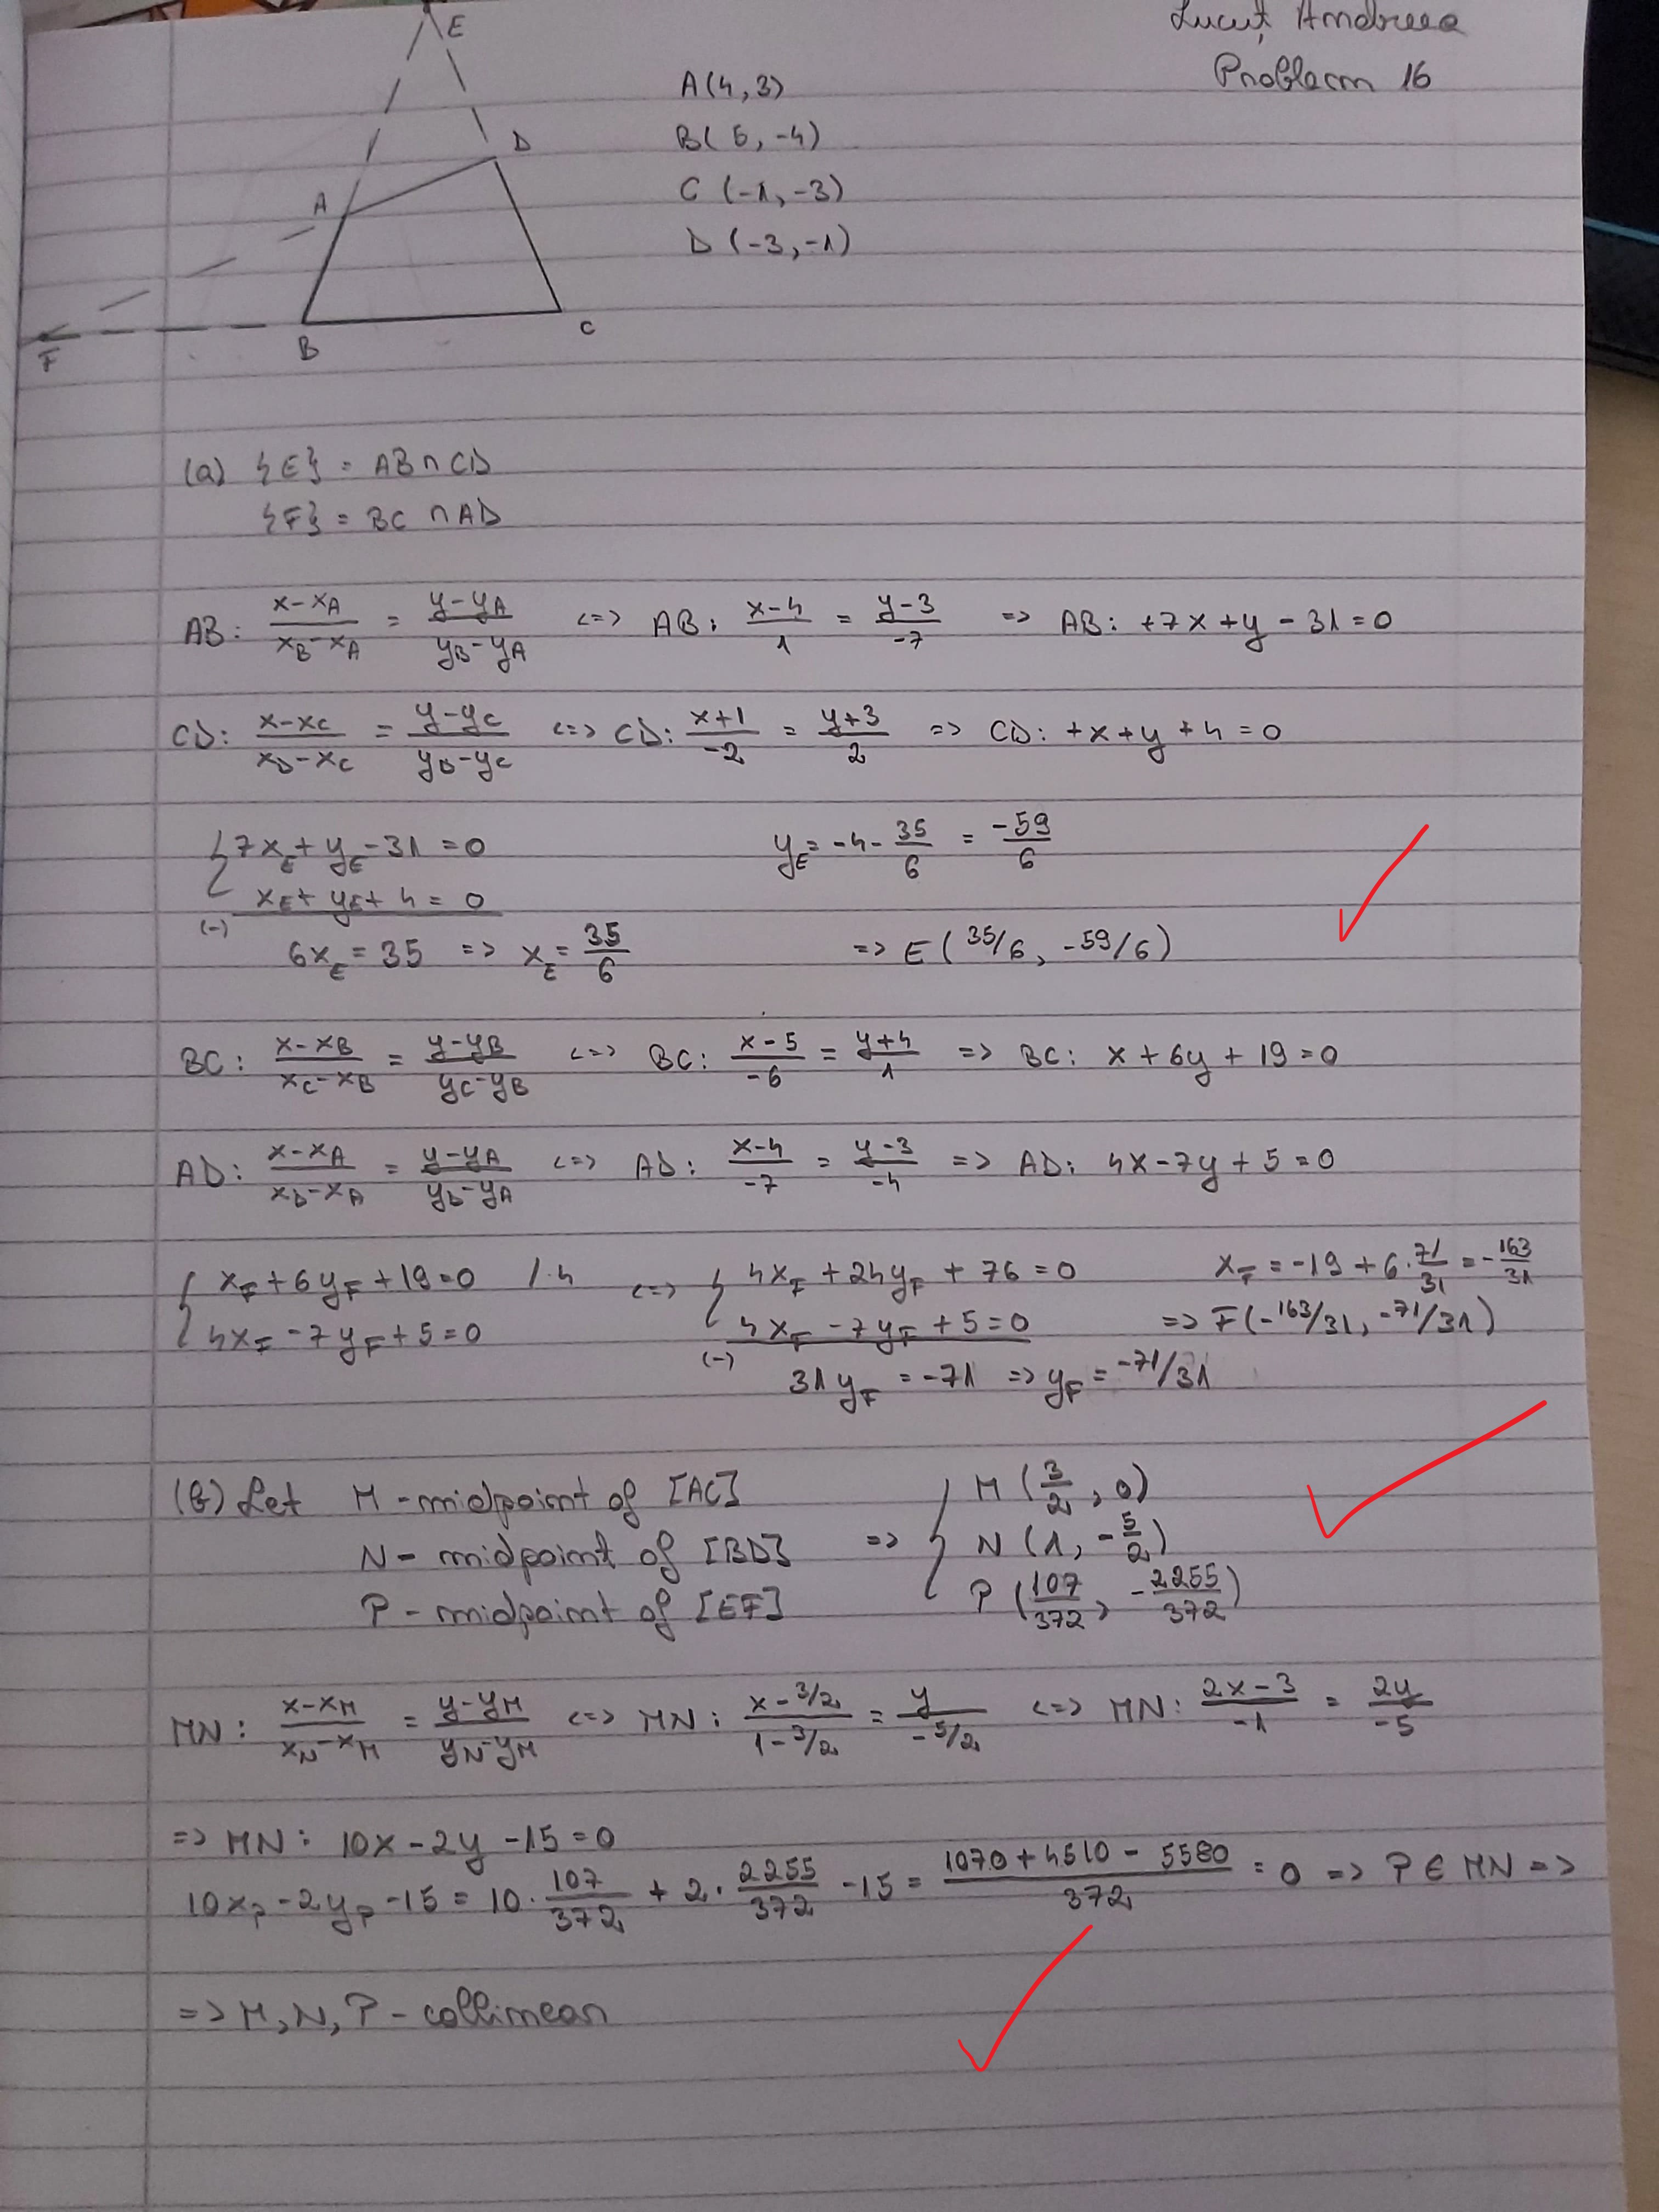 Lucuț Andreea
Problem 16
E
D
A
F
B
C
A(4,3)
B(5,-4)
C(-1,-3)
D(-3,-1)
(a) {E} = AB ∩ CD
{F} = BC ∩ AD
AB: (x-x_A)/(x_B-x_A) = (y-y_A)/(y_B-y_A) <=> AB: (x-4)/1 = (y-3)/-7 => AB: +7x+y-31=0
CD: (x-x_C)/(x_D-x_C) = (y-y_C)/(y_D-y_C) <=> CD: (x+1)/-2 = (y+3)/2 => CD: +x+y+4=0
{ 7x_E+y_E-31=0
x_E+y_E+4=0
(-)
6x_E=35 => x_E=35/6
y_E=-4-35/6 = -59/6
=> E(35/6, -59/6)
BC: (x-x_B)/(x_C-x_B) = (y-y_B)/(y_C-y_B) <=> BC: (x-5)/-6 = (y+4)/1 => BC: x+6y+19=0
AD: (x-x_A)/(x_D-x_A) = (y-y_A)/(y_D-y_A) <=> AD: (x-4)/-7 = (y-3)/-4 => AD: 4x-7y+5=0
{ x_F+6y_F+19=0 /·4 <=> { 4x_F+24y_F+76=0
4x_F-7y_F+5=0 4x_F-7y_F+5=0
(-)
31y_F=-71 => y_F=-71/31
x_F=-19+6·71/31=-163/31
=> F(-163/31, -71/31)
(b) Let M-midpoint of [AC] => { M(3/2, 0)
N-midpoint of [BD] N(1, -5/2)
P-midpoint of [EF] P(107/372, -2255/372)
MN: (x-x_M)/(x_N-x_M) = (y-y_M)/(y_N-y_M) <=> MN: (x-3/2)/(1-3/2) = y/(-5/2) <=> MN: (2x-3)/-1 = 2y/-5
=> MN: 10x-2y-15=0
10x_P-2y_P-15=10·107/372+2·2255/372-15=(1070+4510-5580)/372=0 => P∈MN =>
=> M,N,P-collinear